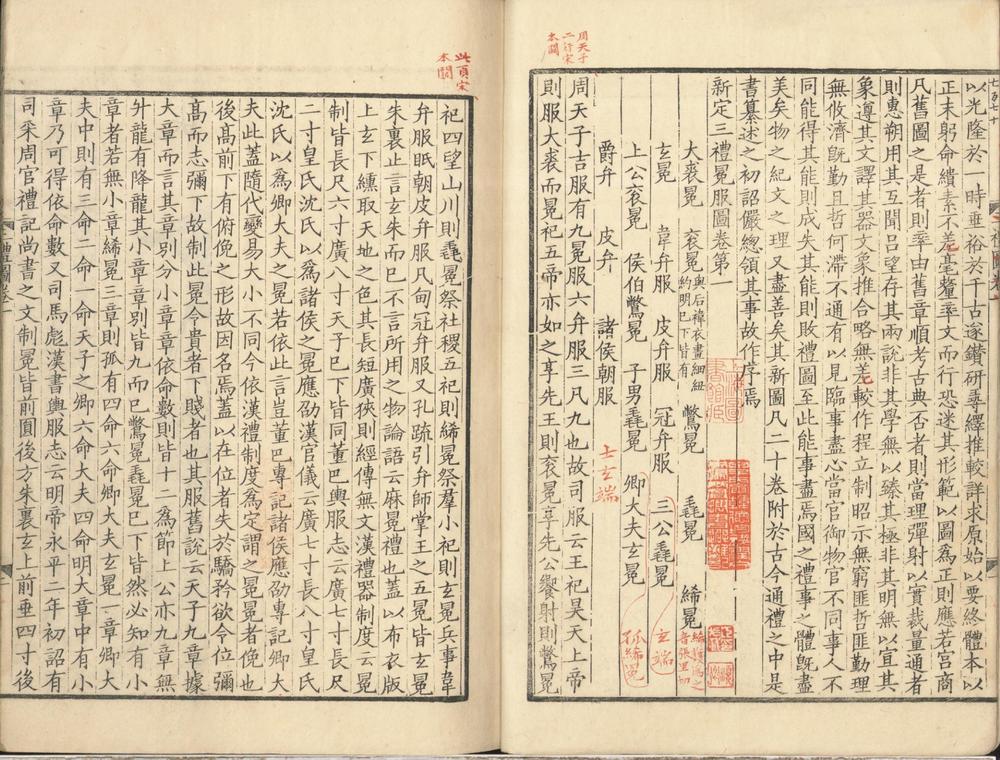 以光隆於一時垂裕於千古遂鑚研尋繹推較詳求原始以要終體本以
正末躬命繢素不差毫釐率文而行恐迷其形範以圖為正則應若宮商
凡舊圖之是者則率由舊章順考古典否者則當理彈射以實裁量通者
則惠朔用其互聞吕望存其兩說非其學無以臻其極非其明無以宜其
象遵其文譯其器文象推合略無差較作程立制昭示無窮匪哲匪勤理
無攸濟既勤且哲何滯不通有以見臨事盡心當官御物官不同事人不
同能得其能則成失其能則敗禮圖至此能事盡焉國之禮事之體旣盡
美矣物之紀文之理又盡善矣其新圖凡二十卷附於古今通禮之中是
書纂述之初詔儼總領其事故作序焉
新定三禮冕服圖卷第一
大裘冕 衮冕與后褘衣畫細紐約明巳下皆有 鷩冕 毳冕 絺冕
玄冕 韋弁服 皮弁服 冠弁服 三公毳冕 玄端
上公衮冕 侯伯鷩冕 子男毳冕 卿大夫玄冕 孤絺冕
爵弁 皮弁 諸侯朝服 士玄端
周天子吉服有九冕服六弁服三凡九也故司服云王祀昊天上帝
則服大裘而冕祀五帝亦如之享先王則衮冕享先公饗射則鷩冕
周天子
二行宋
本闕
祀四望山川則毳冕祭社稷五祀則絺冕祭羣小祀則玄冕兵事韋
弁服眂朝皮弁服凡甸冠弁服又孔疏引弁師掌王之五冕皆玄冕
朱裏止言玄朱而巳不言所用之物論語云麻冕禮也蓋以布衣版
上玄下纁取天地之色其長短廣狹則經傳無文漢禮器制度云冕
制皆長尺六寸廣八寸天子巳下皆同董巴輿服志云廣七寸長尺
二寸皇氏沈氏以為諸侯之冕應劭漢官儀云廣七寸長八寸皇氏
沈氏以為卿大夫之冕若依此言豈董巴專記諸侯應劭專記卿大
夫此蓋隨代變易大小不同今依漢禮制度為定謂之冕冕者俛也
後髙前下有俯俛之形故因名焉蓋以在位者失於驕矜欲令位彌
髙而志彌下故制此冕令貴者下賤者也其服舊說云天子九章據
大章而言其章別分小章章依命數則皆十二為節上公亦九章無
升龍有降龍其小章章別皆九而巳鷩冕毳冕巳下皆然必知有小
章者若無小章絺冕三章則孤有四命六命卿大夫玄冕一章卿大
夫中則有三命二命一命天子之卿六命大夫四命明大章中有小
章乃可得依命數又司馬彪漢書輿服志云明帝永平二年初詔有
司采周官禮記尚書之文制冕皆前圓後方朱裏玄上前垂四寸後
此頁宋
本闕